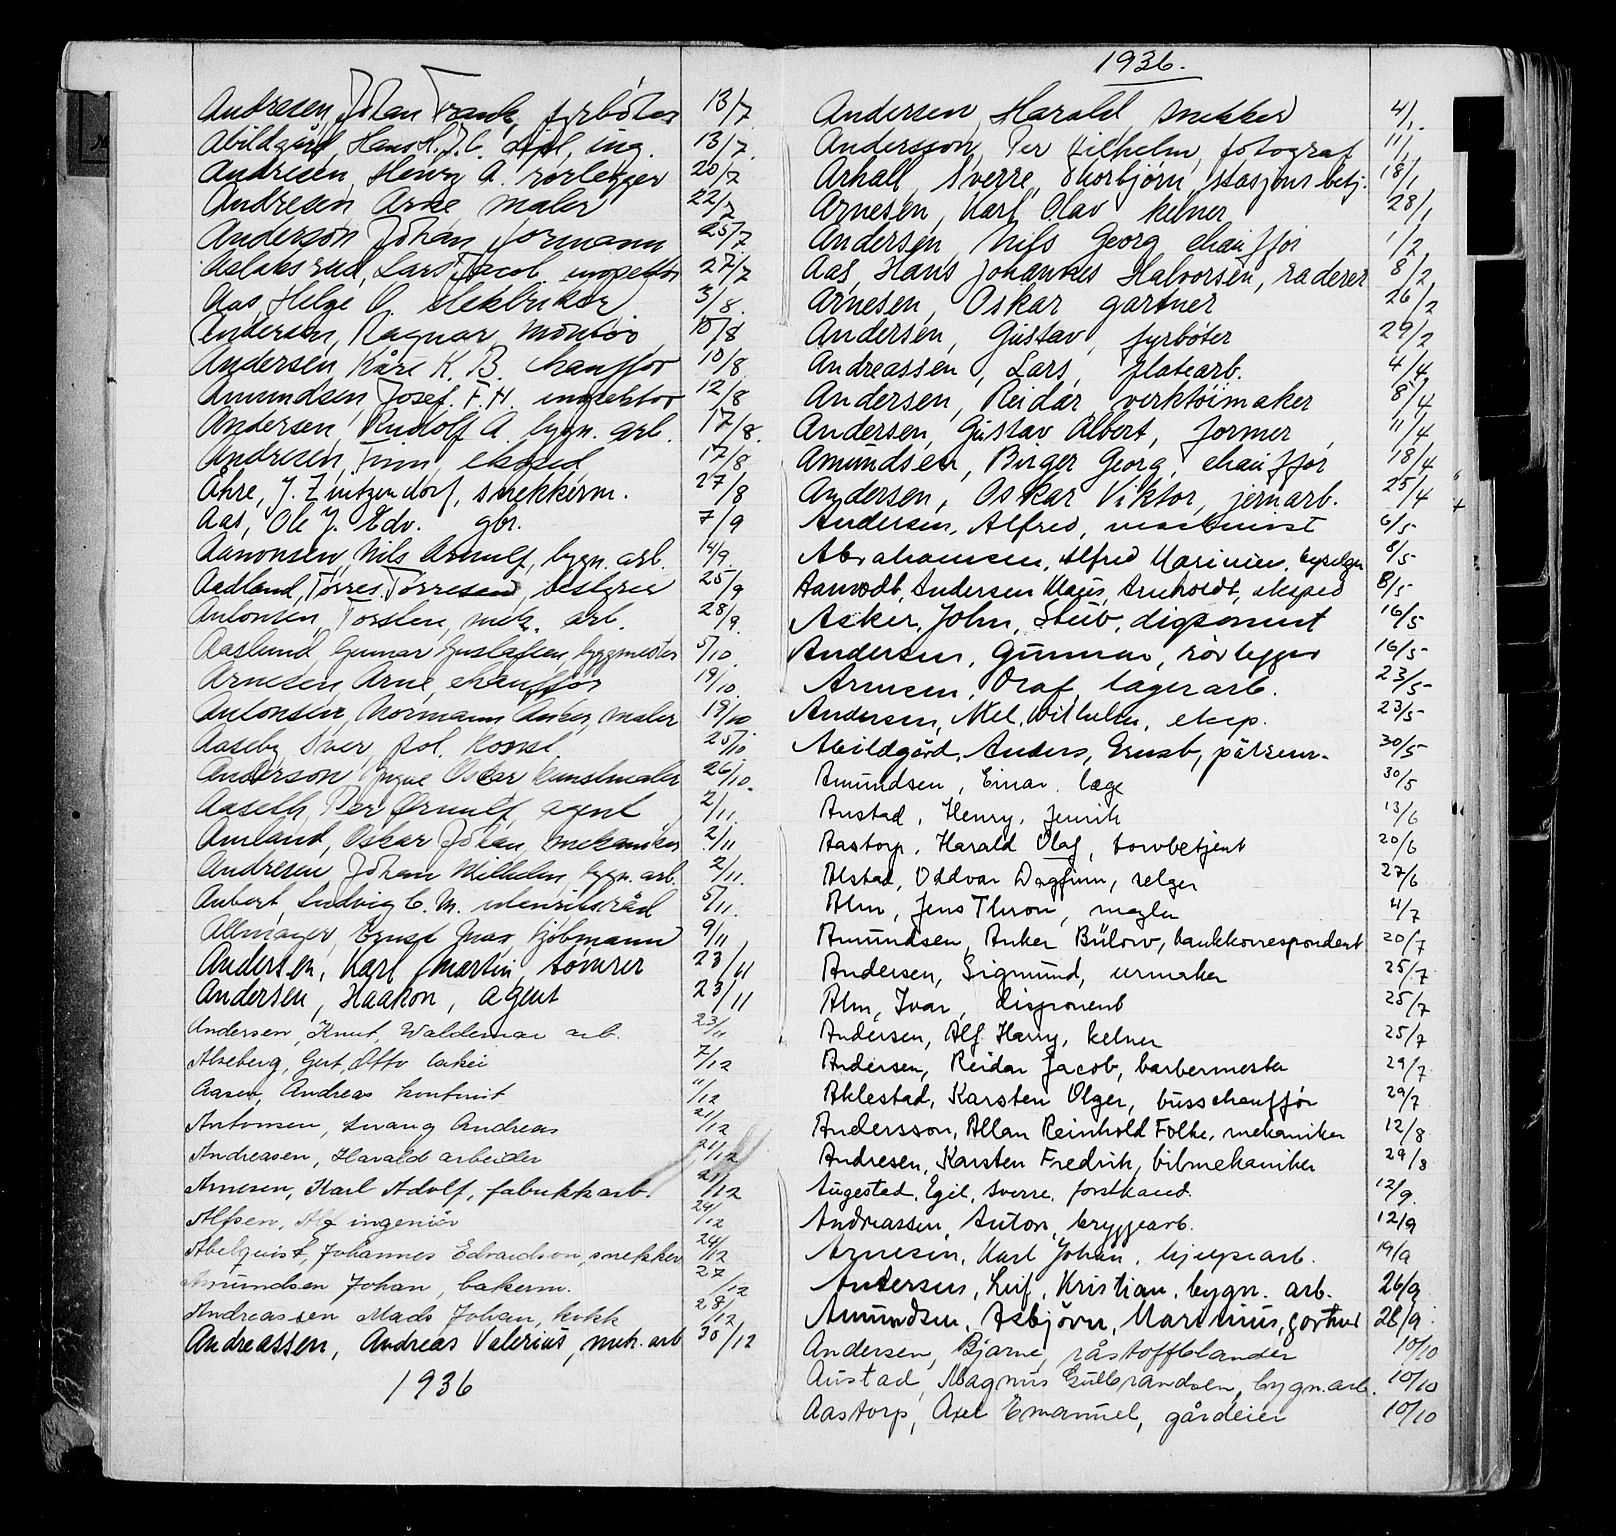 Andresen, Johan Frank, fyrbøter 13/7
Abildgård, Hans H. J. C. dipl. ing. 13/7
Andresen, Henry A. rørlegger 20/7
Andresen Arne maler 22/7
Anderson Johan formann 25/7
Aslaksrud, Lars Jacob inspektør 27/7
Aas, Helge O. elektriker 3/8
Andersen, Ragnar, montør 10/8
Andersen Kåre K. B. chauffør 10/8
Amundsen, Josef. F. H. inspektør 12/8
Andersen, Rudolf A. bygn. arb. 17/8
Andresen, Finn, eksped. 17/8
Åhre, J. Zintzendorf, snekkerm. 27/8
Aas, Ole J. Edv. gbr. 7/9
Aanonsen, Nils Arnulf, bygn. arb. 14/9
Aadland, Torres Torresen, bestyrer 25/9
Antonsen, Torsten, mek. arb. 28/9
Aaslund, Gunnar Gustafsen, byggmester 5/10
Arnesen, Arne, chauffør 19/10
Antonsen, Normann Anker, maler 19/10
Aaseby Iver, pol. konst. 25/10
Anderson Yngve Oscar kunstmaler 26/10
Aaseth, Per Ørnulf, agent 2/11
Amland, Oskar Johan, mekaniker 2/11
Andresen Johan Wilhelm, bygn. arb. 2/11
Aubert, Ludvig C. M. ministerråd 5/11
Allmayer, Ernst Max, kjøbmann 9/11
Andersen, Karl Martin, tømrer 23/11
Andersen, Haakon, agent 23/11
Andersen, Knut, Waldemar arb. 23/11
Alseberg, Gert, Otto 7/12
Aasen, Andreas kontorist 11/12
Antonsen, Svang Andreas 21/12
Andreasen, Harald arbeider 21/12
Arnesen, Karl Adolf, fabrikkarb. 21/12
Alfsen, Alf ingeniør 24/12
Abelquist, Johannes Edvardson, snekker 24/12
Amundsen Johan, bakerm. 27/12
Andreassen Mads Johan, kokk 28/12
Andreassen, Andreas Valerius, mek. arb 30/12
1936
1936.
Andersen, Harald snekker 4/1.
Andersson, Per Vilhelm, fotograf 11/1
Arhall, Sverre, Thorbjørn, stasjons betj. 18/1
Arnesen, Karl Olav kelner 28/1
Andersen, Nils Georg chauffør 1/2
Aas, Hans Johannes Halvorsen, raderer 8/2
Arnesen, Oskar gartner 26/2
Andersen, Gustav, fyrbøter 29/2
Andreassen, Lars, platearb. 4/4
Andersen, Reidar verktøimaker 8/4
Andersen, Gustav Albert, former, 11/4
Amundsen, Birger Georg, chauffør 18/4
Andersen, Oskar Viktor, jernarb. 25/4 +
Andersen, Alfred, maskinist 6/5
Abrahamsen, Alfred Marinius, 8/5
Aanrodt, Andersen Klaus, Arnholdt, eksped 8/5
Asker, John, Stub, disponent 16/5
Andersen, Gunnar, rørlegger 16/5
Arnesen, Olaf, lagerarb. 23/5
Andersen, Axel, Wilhelm, eksp. 23/5
Abildgård, Anders, Ernst, pølsem. 30/5
Amundsen, Einar. læge 30/5
Anstad, Henry, Henrik 13/6
Aastorp, Harald Olaf, tollbetjent 20/6
Alstad, Oddvar Dagfinn, selger 27/6
Alm, Jens Thron, megler 4/7
Amundsen, Anker Bülow, bankkorrespondent 20/7
Andersen, Sigmund, urmaker 25/7
Alm, Ivar, disponent 25/7
Andersen, Alf Harry, kelner 25/7
Andersen, Reidar Jacob, barbermester 29/7
Aklestad, Karsten Olger, busschauffør 29/7
Andersson, Allan Reinhold Folke, mekaniker 12/8
Andresen, Karsten Fredrik, bilmekaniker 29/8
Augestad, Egil, Sverre, forstkand. 12/9.
Andreassen, Anton, bryggearb. 12/9
Arnesen, Karl Johan, hjelpearb. 19/9
Andersen, Leif, Kristian, bygn. arb. 26/9
Amundsen, Asbjørn, Marinius, gartner 28/9
Andersen, Bjarne, råstoffblander 10/10
Austad, Magnus Gulbrandsen, bygn.arb. 10/10
Aastorp, Axel Emanuel, gårdeier 10/10